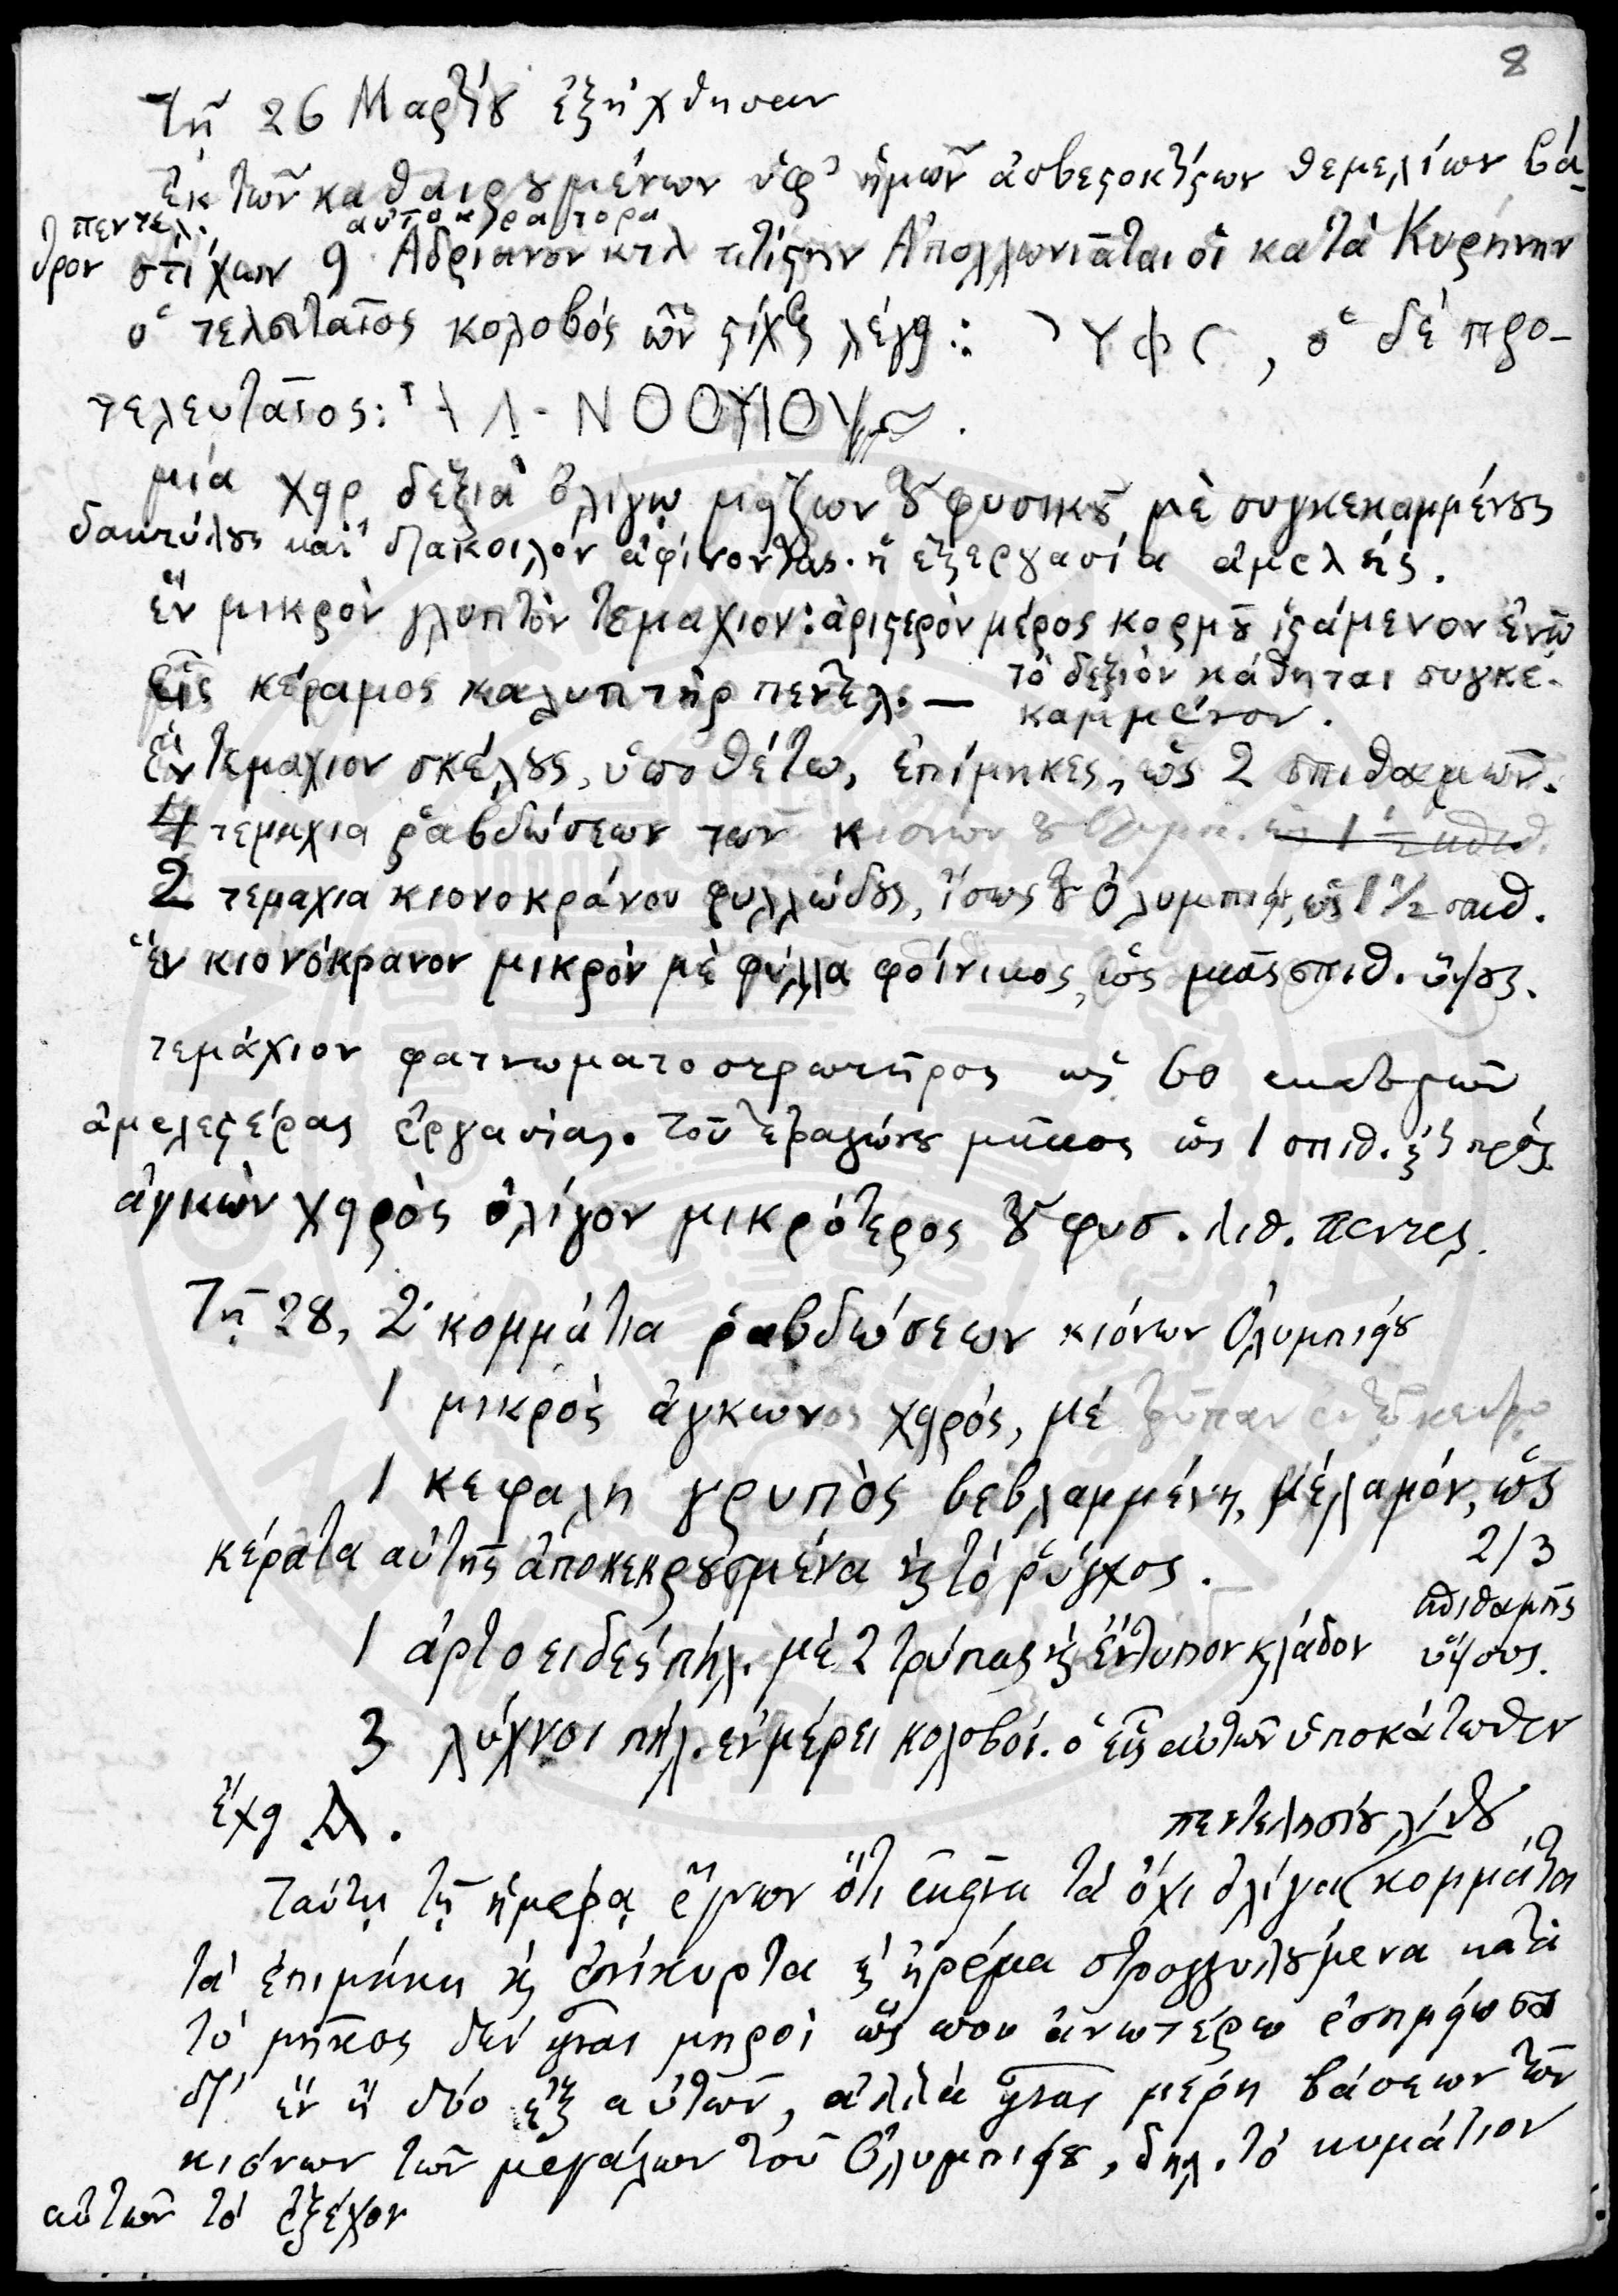 8
Τῇ 26 Μαρτίου ἐξήχθησαν
ἐκ τῶν καθαιρουμένων ὑφ' ἡμῶν ἀσβεστοκτίστων θεμελίων βά-
πεντελ. αὐτοκράτορα
θρον στίχων 9 Ἀδριανὸν κτλ Ἀπολλωνιᾶται οἱ κατὰ Κυρήνην
ὁ τελευταῖος κολοβός ὢν στίχος λέγει: ΥΦΣ, ὁ δὲ προ-
τελευταῖος: ΝΟΟΥΙΟΥ
μία χεὶρ δεξιὰ ὀλίγῳ μείζων τοῦ φυσικοῦ μὲ συγκεκαμμένους
δακτύλους καὶ διάκοιλον ἀφίνοντας. ἡ ἐξεργασία ἀμελής.
ἓν μικρὸν γλυπτὸν τεμάχιον: ἀριστερὸν μέρος κορμοῦ ἱστάμενον ἐνῷ
τὸ δεξιὸν κάθηται συγκε-
καμμένον.
εἷς κέραμος καλυπτὴρ πεντελ. —
ἓν τεμάχιον σκέλους, ὑποθέτω, ἐπίμηκες, ὡς 2 σπιθαμῶν.
4 τεμάχια ῥαβδώσεων τῶν κιόνων τοῦ Ὀλυμπ. ὡς 1 1/2 σπιθ.
2 τεμάχια κιονοκράνου φυλλώδους, ἴσως τοῦ Ὀλυμπιείου, ὡς 1 1/2 σπιθ.
ἓν κιονόκρανον μικρὸν μὲ φύλλα φοίνικος, ὡς μιᾶς σπιθ. ὕψους.
τεμάχιον φατνωματοστρωτῆρος ὡς 60
ἀμελεστέρας ἐργασίας. τοῦ τετραγώνου μῆκος ὡς 1 σπιθ. ἑξ πρός
ἀγκὼν χειρὸς ὀλίγον μικρότερος τοῦ φυσ. λιθ. πεντελ.
Τῇ 28, 2 κομμάτια ῥαβδώσεων κιόνων Ὀλυμπιείου
1 μικρὸς ἀγκῶνος χειρός, μὲ τρύπαν ἐν τῷ κέντρῳ
1 κεφαλὴ γρυπὸς βεβλαμμένη, ὡς
2/3
σπιθαμῆς
ὕψους.
κέρατα αὐτῆς ἀποκεκρουσμένα καὶ τὸ ῥύγχος.
1 ἀρτοειδὲς πήλ. μὲ 2 τρύπας καὶ ἔντυπον κλάδον
3 λύχνοι πήλ. ἐν μέρει κολοβοί. ὁ εἷς αὐτῶν ὑποκάτωθεν
ἔχει Α.
πεντελησίου λίθου
Ταύτῃ τῇ ἡμέρᾳ ἔγνων ὅτι ἐκεῖνα τὰ ὄχι ὀλίγα κομμάτια
τὰ ἐπιμήκη καὶ ἐπίκυρτα καὶ ἠρέμα στρογγυλούμενα κατὰ
τὸ μῆκος δὲν εἶναι μηροὶ ὥς που ἀνωτέρω ἐσημείωσα
δι' ἓν ἢ δύο ἐξ αὐτῶν, ἀλλὰ εἶναι μέρη βάσεων τῶν
κιόνων τῶν μεγάλων τοῦ Ὀλυμπιείου, δηλ. τὸ κυμάτιον
αὐτῶν τὸ ἐξέχον